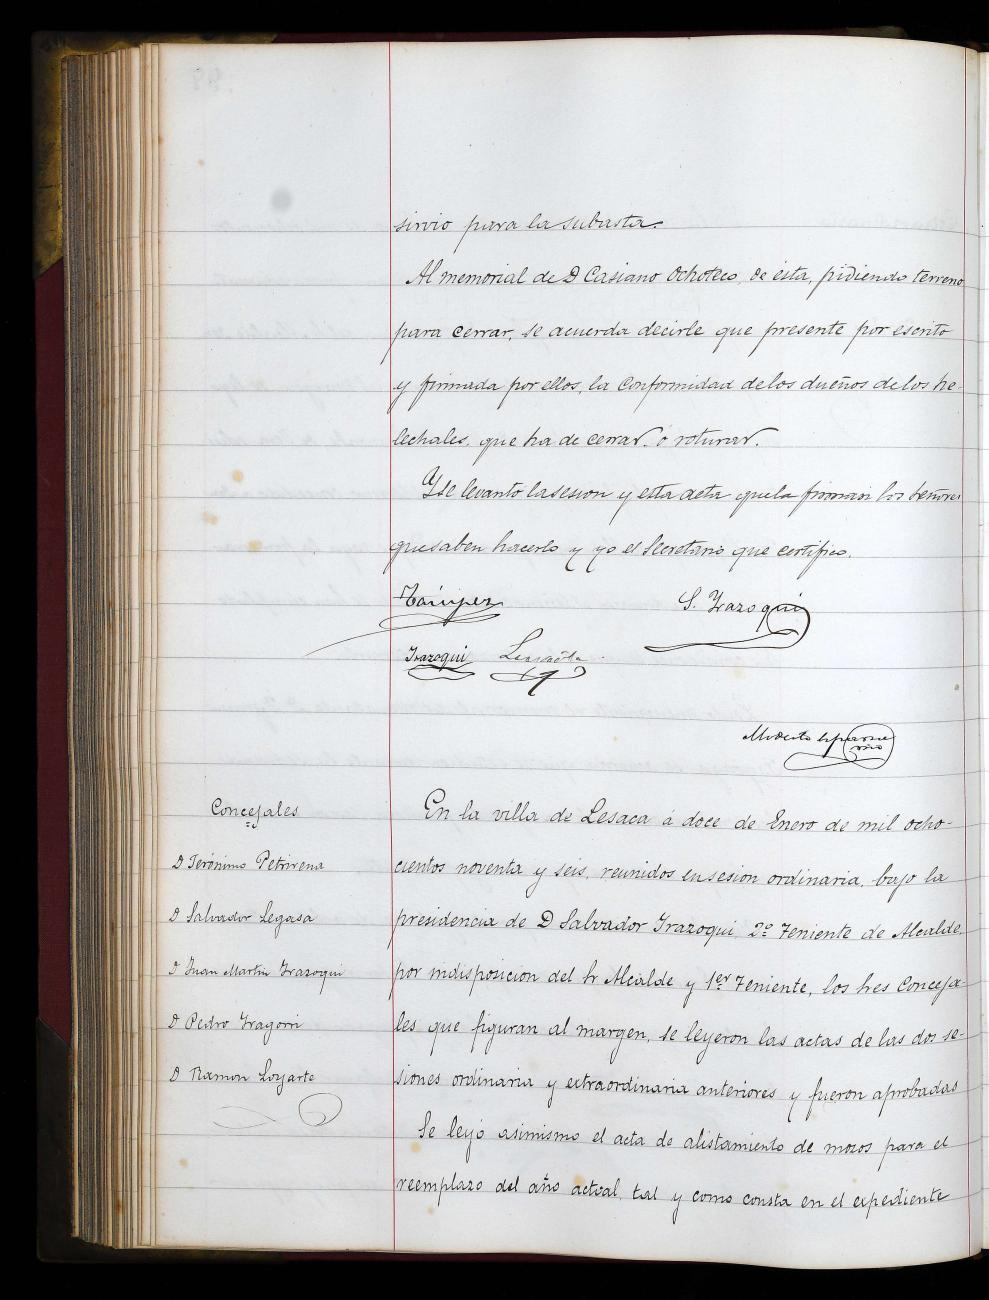 sirvio para la subasta.
Al memorial de D Casiano Ochoteco, de ésta, pidiendo terreno
para cerrar, se acuerda decirle que presente por escrito
y firmada por ellos, la conformidad de los dueños de los he-
lechales, que ha de cerrar ó roturar.
Y se levantó la sesion y esta acta que la firman los Señores
que saben hacerlo y yo el Secretario que certifico.
S. Yrazoqui
Yrazoqui
Modesto
Concejales
D Jerónimo Petrirena
D Salvador Legasa
D Juan Martin Yrazoqui
D Pedro Yragorri
D Ramon Loyarte
En la villa de Lesaca á doce de Enero de mil ocho-
cientos noventa y seis, reunidos en sesion ordinaria, bajo la
presidencia de D Salvador Yrazoqui 2º Teniente de Alcalde,
por indisposicion del Sr Alcalde y 1er Teniente, los Sres Conceja-
les que figuran al margen, se leyeron las actas de las dos se-
siones ordinaria y extraordinaria anteriores y fueron aprobadas
Se leyó asimismo el acta de alistamiento de mozos para el
reemplazo del año actual, tal y como consta en el expediente